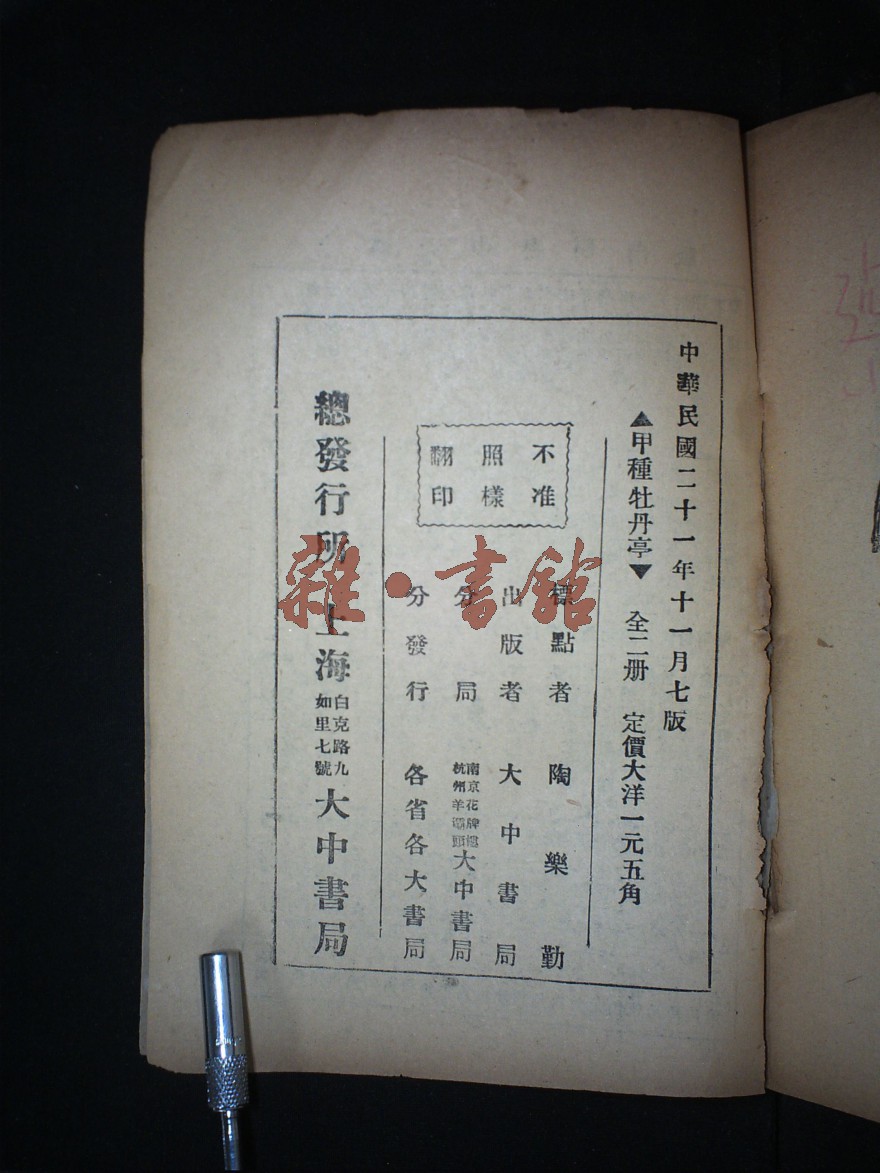 中華民國二十一年十一月七版
▲甲種牡丹亭▼ 全二册 定價大洋一元五角
不准
照樣
翻印
標點者 陶樂勤
出版者 大中書局
分局 南京花牌樓 杭州羊壩頭 大中書局
分發行 各省各大書局
總發行所 上海 白克路九如里七號 大中書局
雜·書館